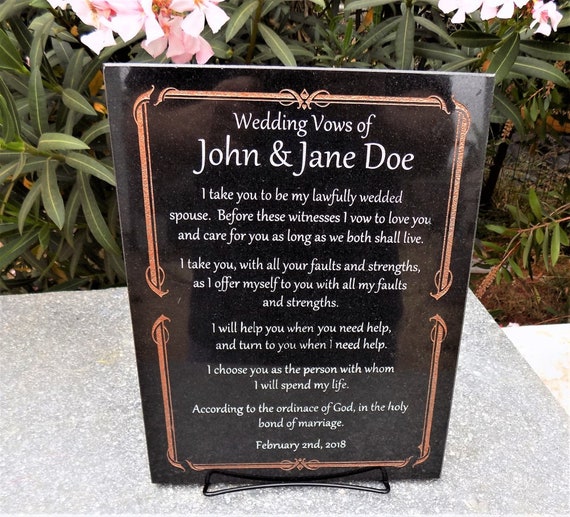 Wedding Vows of
John & Jane Doe
I take you to be my lawfully wedded
spouse. Before these witnesses I vow to love you
and care for you as long as we both shall live.
I take you, with all your faults and strengths,
as I offer myself to you with all my faults
and strengths.
I will help you when you need help,
and turn to you when I need help.
I choose you as the person with whom
I will spend my life.
According to the ordinace of God, in the holy
bond of marriage.
February 2nd, 2018